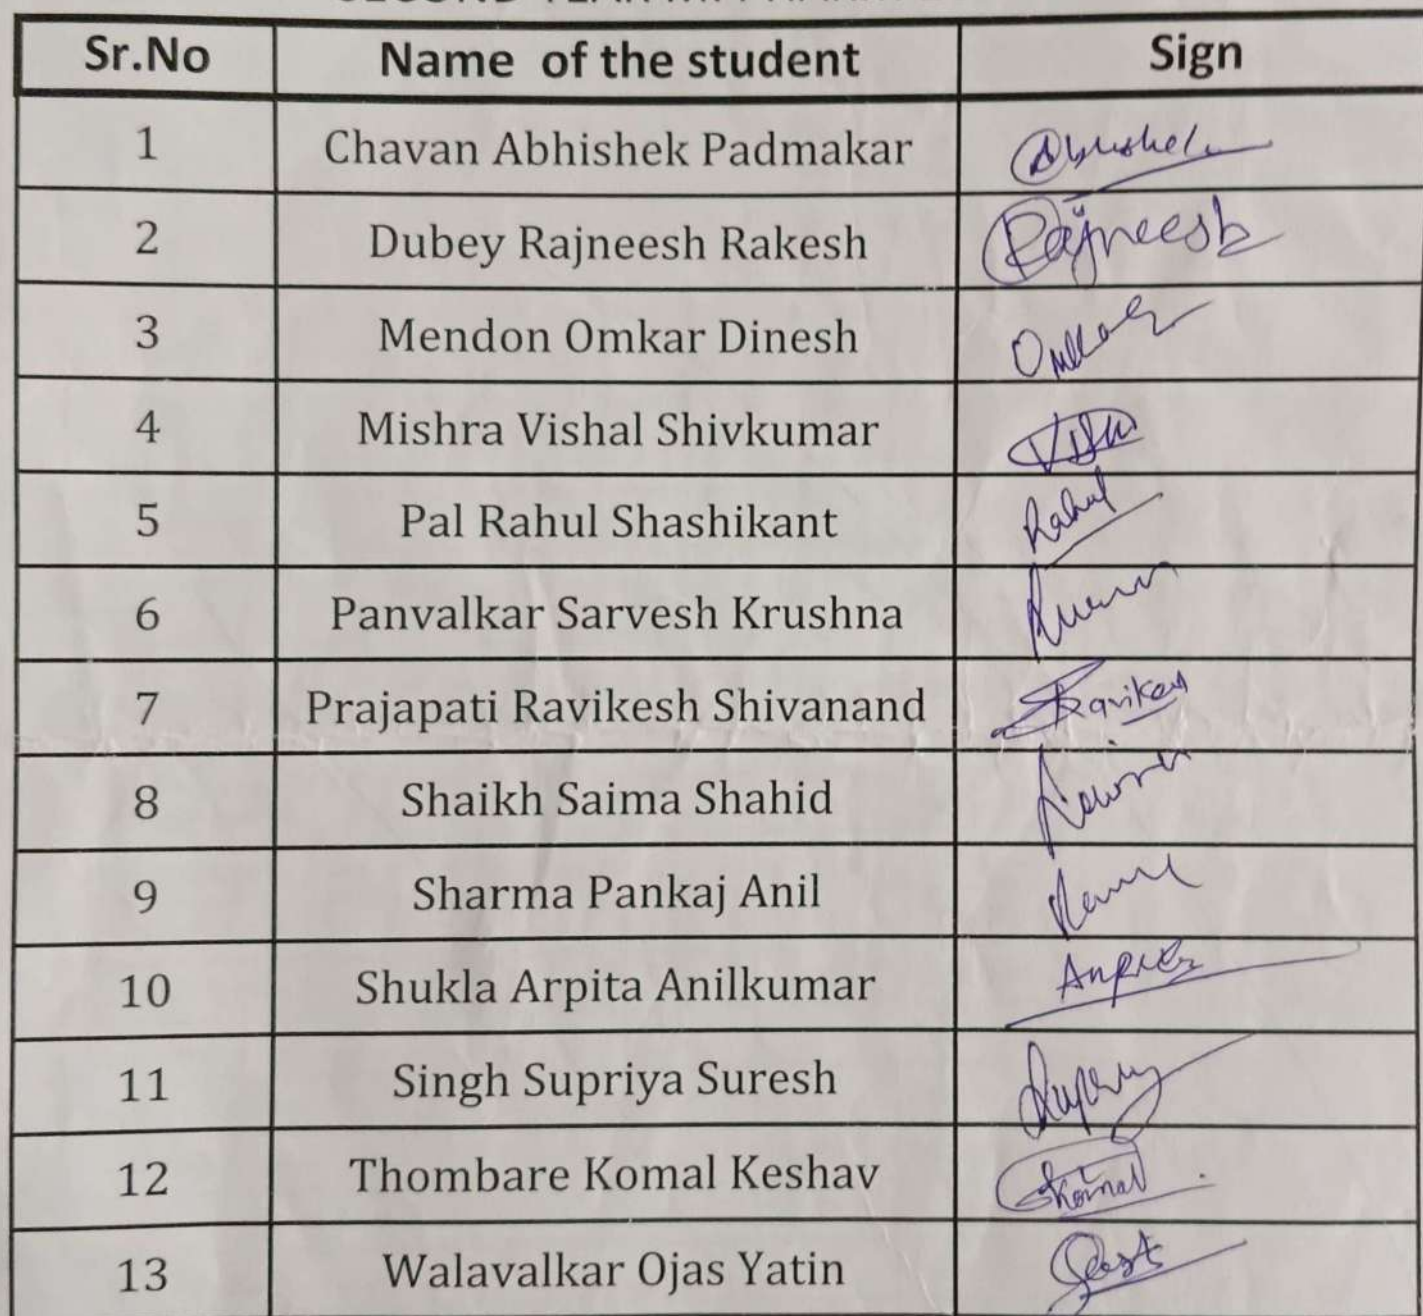 Sr.No Name of the student Sign
1 Chavan Abhishek Padmakar Abhishek
2 Dubey Rajneesh Rakesh Rajneesh
3 Mendon Omkar Dinesh Omkar
4 Mishra Vishal Shivkumar
5 Pal Rahul Shashikant Rahul
6 Panvalkar Sarvesh Krushna
7 Prajapati Ravikesh Shivanand
8 Shaikh Saima Shahid
9 Sharma Pankaj Anil
10 Shukla Arpita Anilkumar
11 Singh Supriya Suresh
12 Thombare Komal Keshav Komal
13 Walavalkar Ojas Yatin